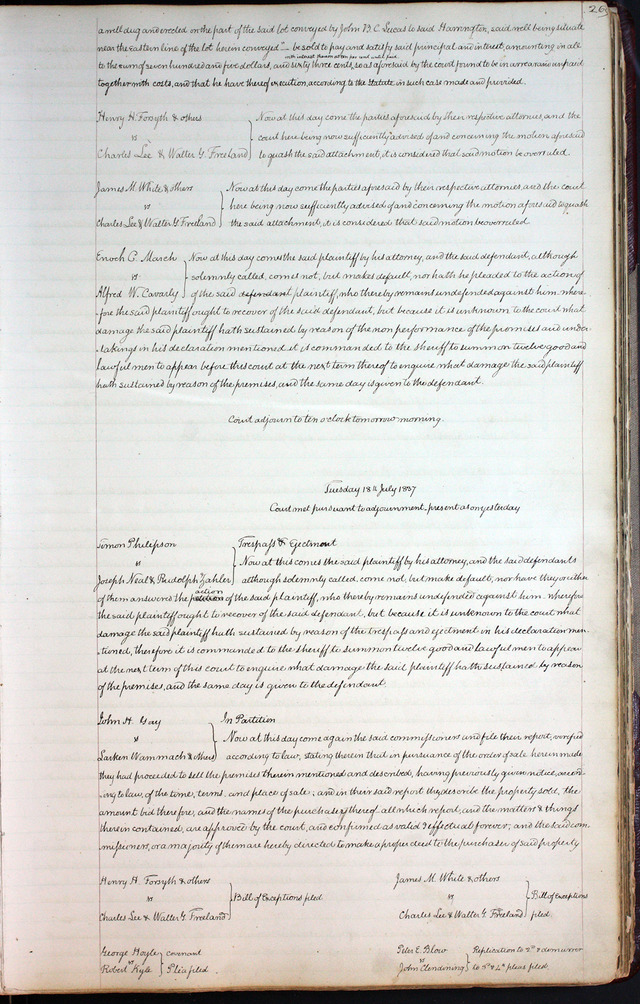 26
a well dug and erected on the part of the said lot conveyed by John B. C. Lucas to said Harrington, said well being situate
near the eastern line of the lot herein conveyed" - be sold to pay and satisfy said principal and interest, amounting in all
with interest thereon at ten per cent until paid
to the sum of seven hundred and five dollars, and sixty three cents, so as aforesaid by the court found to be in arrear and unpaid
together with costs, and that he have thereof execution, according to the statute in such case made and provided.
Henry H. Forsyth & others
vs
Charles Lee & Walter G. Freeland
Now at this day come the parties aforesaid by their respective attornies, and the
court here being now sufficiently advised of and concerning the motion aforesaid
to quash the said attachment, it is considered that said motion be overruled.
James M. White & others
vs
Charles Lee & Walter G. Freeland
Now at this day come the parties aforesaid by their respective attornies, and the court
here being now sufficiently advised of and concerning the motion aforesaid to quash
the said attachment, it is considered that said motion be overruled.
Enoch C. March
vs
Alfred W. Cavarly
Now at this day comes the said plaintiff by his attorney, and the said defendant, although
solemnly called, comes not, but makes default, nor hath he pleaded to the action of
of the said defendant plaintiff, who thereby remains undefended against him. where
-fore the said plaintiff ought to recover of the said defendant, but because it is unknown to the court what
damage the said plaintiff hath sustained by reason of the non performance of the promises and under
-takings in his declaration mentioned it is commanded to the sheriff to summon twelve good and
lawful men to appear before this court at the next term thereof to enquire what damage the said plaintiff
hath sustained by reason of the premises, and the same day is given to the defendant.
Court adjourn to ten o'clock tomorrow morning.
Tuesday 18th July 1837
Court met pursuant to adjournment, present as on yesterday
Simon Philipson
vs
Joseph Neal & Rudolph Zahler
Trespass & Ejectment
Now at this comes the said plaintiff by his attorney, and the said defendants
although solemnly called, come not, but make default, nor have they or either
action
of them answered the of the said plaintiff, who thereby remains undefended against him. wherefore
the said plaintiff ought to recover of the said defendant, but because it is unknown to the court what
damage the said plaintiff hath sustained by reason of the trespass and ejectment in his declaration men
-tioned, therefore it is commanded to the sheriff to summon twelve good and lawful men to appear
at the next term of this court to enquire what damage the said plaintiff hath sustained by reason
of the premises, and the same day is given to the defendant.
John H. Gay
vs
Larken Wammach & others
In Partition
Now at this day come again the said commissioners and file their report, verified
according to law, stating therein that in pursuance of the order of sale herein made
they had proceeded to sell the premises therein mentioned and described, having previously given notice, accord
-ing to law, of the time, terms, and place of sale; and in their said report they describe the property sold, the
amount bid therefore, and the names of the purchasers thereof. all which report, and the matters & things
therein contained, are approved by the court, and confirmed as valid & effectual forever; and the said com
-missioners, or a majority of them are hereby directed to make a proper deed to the purchaser of said property
Henry H. Forsyth & others
vs
Charles Lee & Walter G. Freeland
Bill of Exceptions filed.
James M. White & others
vs
Charles Lee & Walter G. Freeland
Bill of Exceptions
filed.
George Hoyle
vs
Robert Kyle
covenant
Plea filed.
Peter E. Blow
vs
John Clendining
Replication to 2d & demurrer
to 3d & 4th pleas filed.